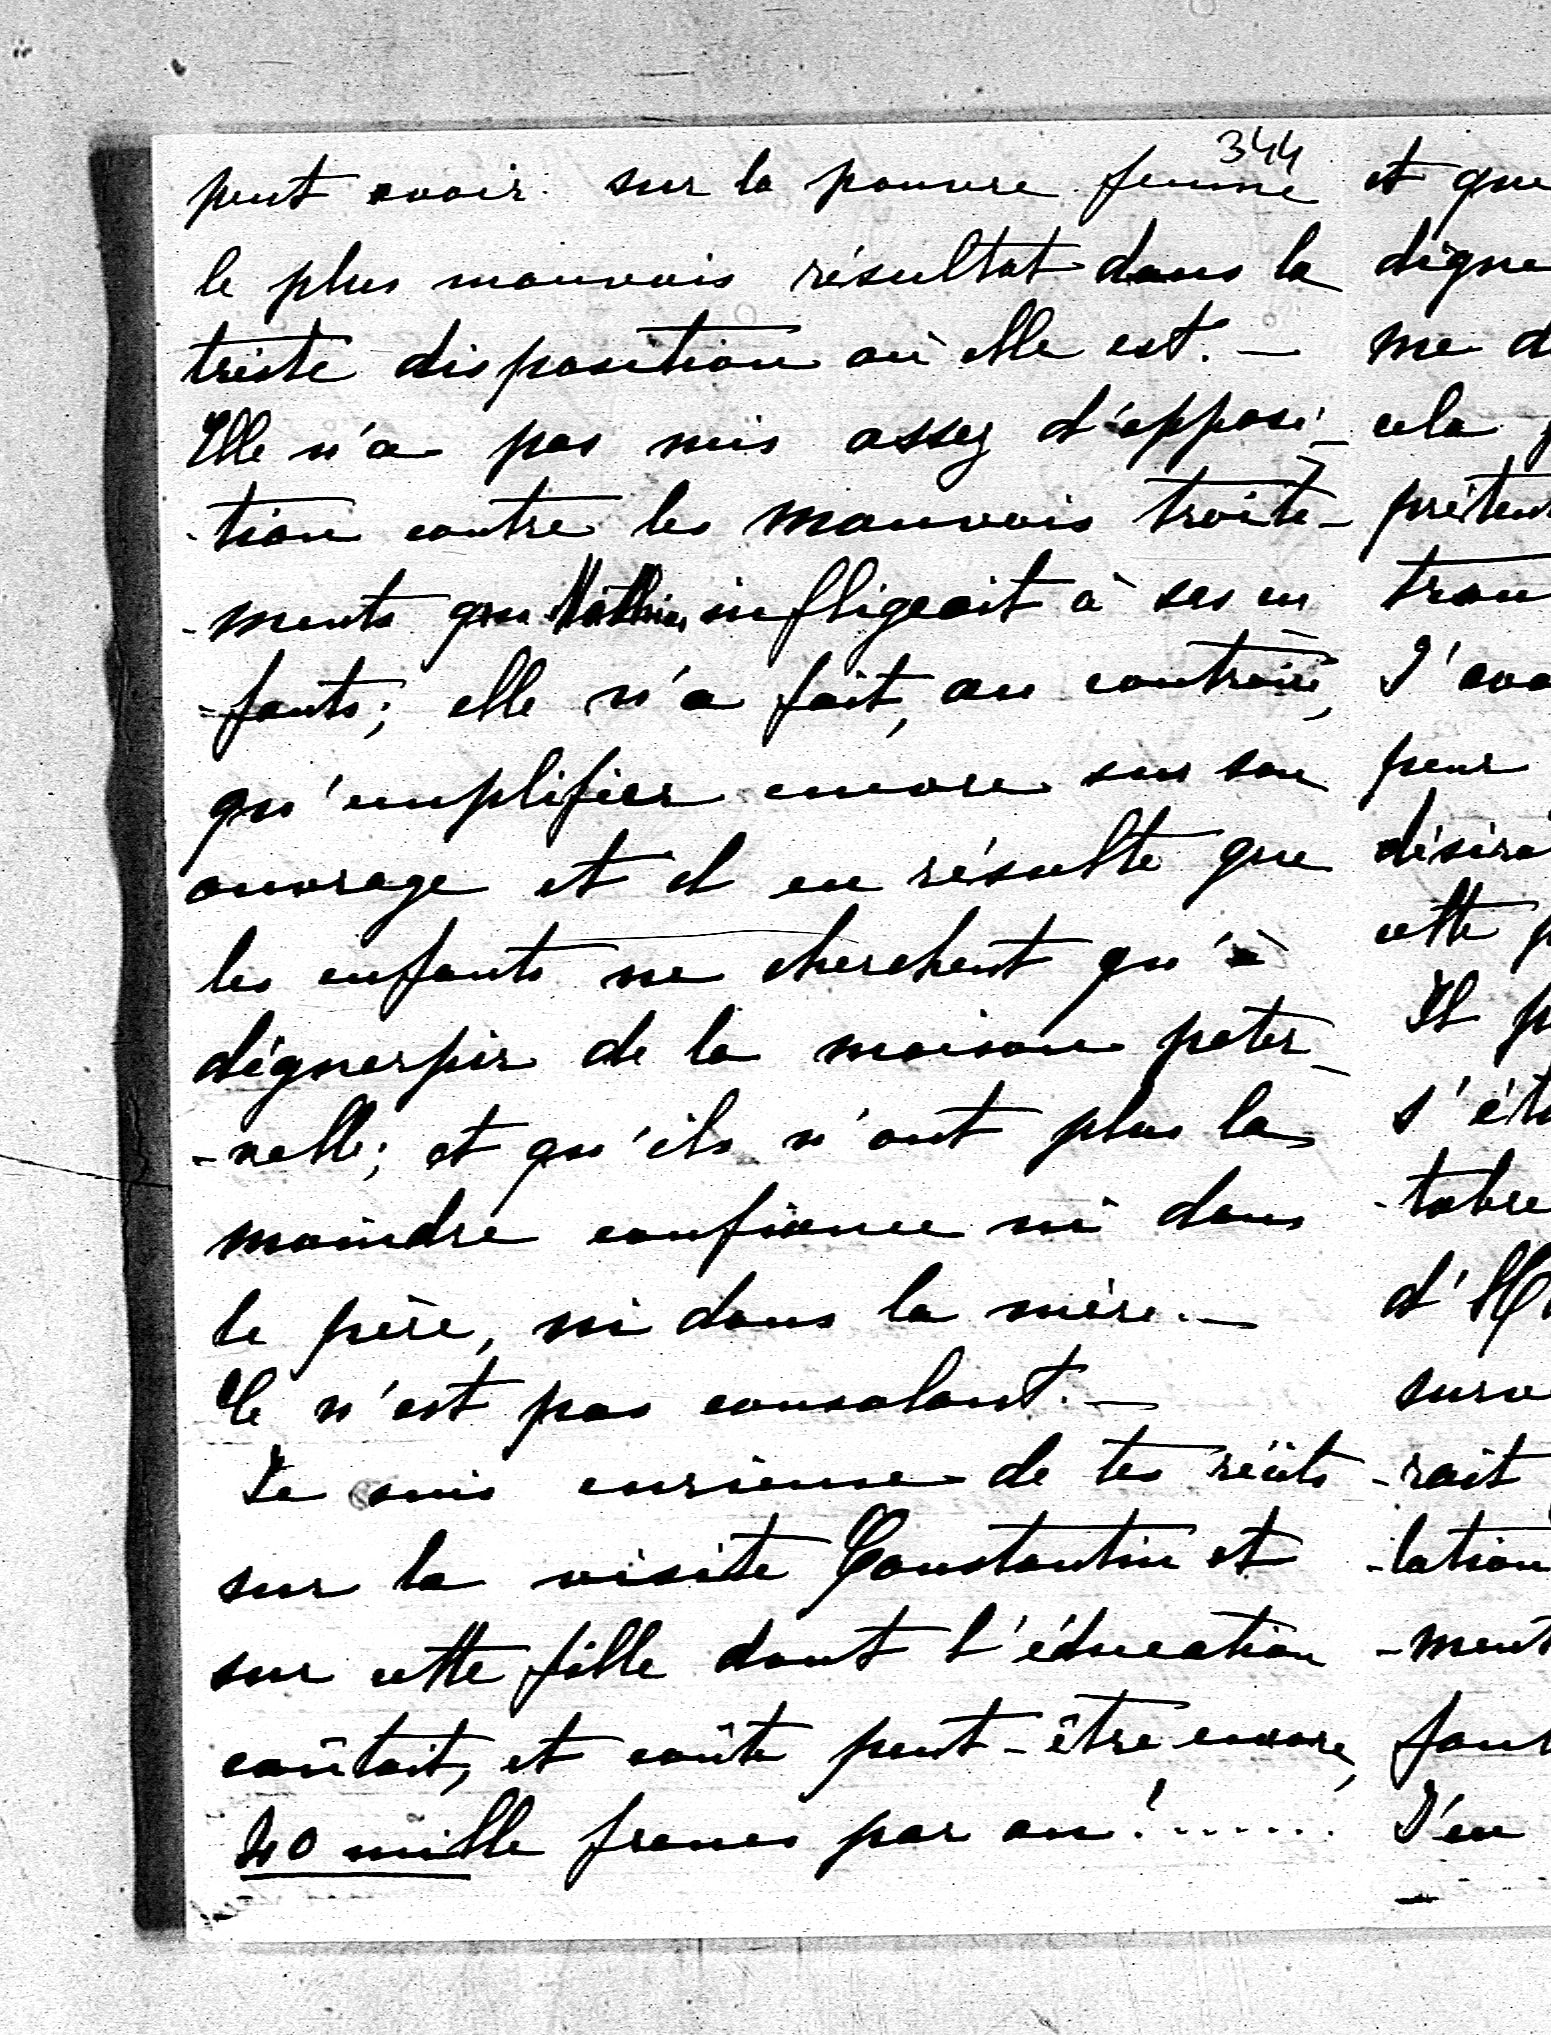 344
peut avoir sur la pauvre femme
le plus mauvais résultat dans la
triste disposition où elle est. —
Elle n'a pas mis assez d'opposi-
-tion contre les mauvais traite-
-ments que Mathieu infligeait à ses en
-fants; elle n'a fait, au contraire,
qu'emplifier encore sur son
ouvrage et il en résulte que
les enfants ne cherchent qu'à
déguerpir de la maison pater-
-nelle; et qu'ils n'ont plus la
moindre confiance ni dans
le père, ni dans la mère. —
Ce n'est pas consolant. —
Je suis curieuse de tes récits
sur la visite Constantin et
sur cette fille dont l'éducation
coûtait, et coûte peut-être encore,
40 mille francs par an! ......
et que
digne
me d
cela
prétent
trou
J'ava
pour
désira
cette p
Il p
s'éta
-tobre
surve
-rait
-lation
-ment
J'en